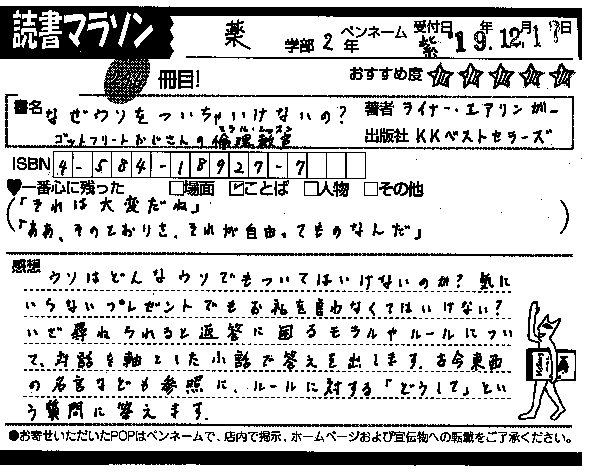 読書マラソン 薬 学部 2年 ペンネーム 紫 受付日 '19年12月17日
冊目! おすすめ度 ★★★★★
書名 なぜウソをついちゃいけないの? 著者 ライナー・エアリンガー
ゴットフリートおじさんの倫理教室 モラル・レッスン 出版社 KKベストセラーズ
ISBN 4-584-18927-7
♥一番心に残った □場面 ☑ことば □人物 □その他
「それは大変だね」
「ああ、そのとおりさ、それが自由ってものなんだ」
感想
ウソはどんなウソでもついてはいけないのか? 気に
いらないプレゼントでもお礼を言わなくてはいけない?
いざ尋ねられると返答に困るモラルやルールについ
て、対話を軸とした小話で答えを出します。古今東西
の名言なども参照に、ルールに対する「どうして」とい
う質問に答えます。
●お寄せいただいたPOPはペンネームで、店内で掲示、ホームページおよび宣伝物への転載をご了承ください。